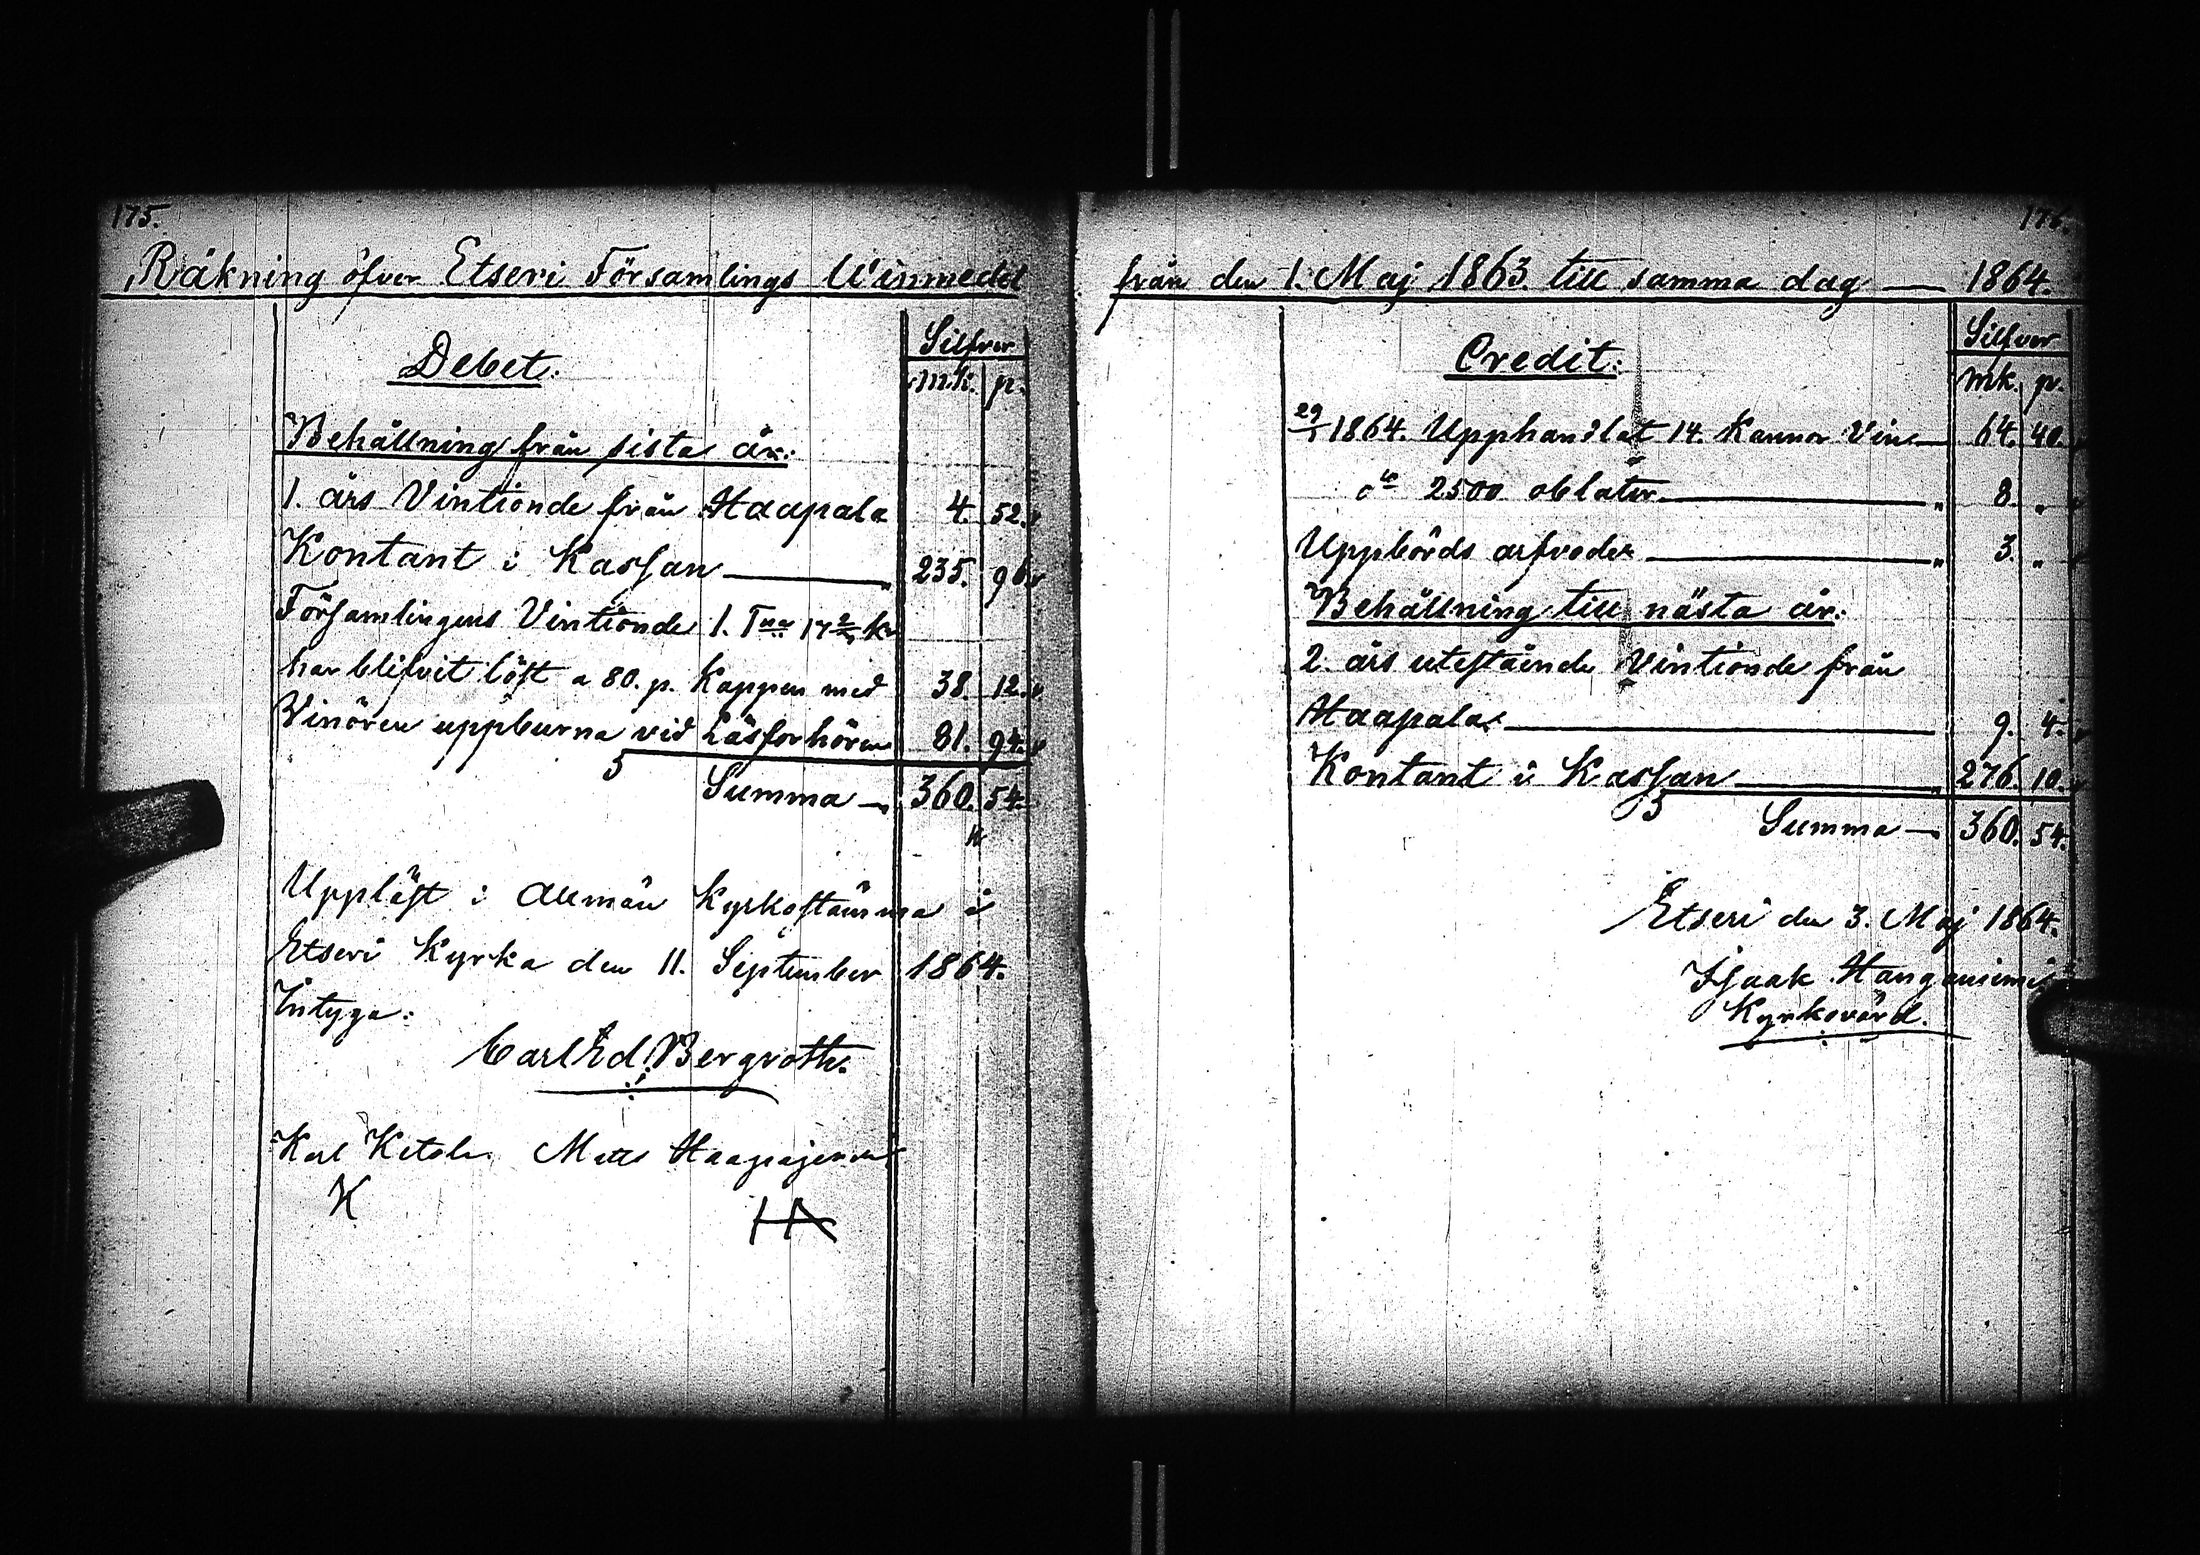 175.
Räkning öfver Etseri Församlings Winmedel
Debet.
Silfver
mk. p.
Behållning från sista år:
1. års Vintionde från Haapala 4. 52.
Kontant i Kassan 235. 96
Församlingens Vintionde 1. Tna 17 2/3 kr
har blifvit löst a 80. p. Kappen med 38. 12.
Vinören uppburna vid Läsförhören 81. 94.
5
Summa 360. 54.
Uppläst i Allmän Kyrkostämma i
Etseri Kyrka den 11. September 1864.
Intyga:
Carl Ed. Bergroth.
Karl Ketola Matts
K HA
176.
från den 1. Maj 1863. till samma dag — 1864.
Credit:
Silfver
mk. p.
29/1 1864. Upphandlat 14. Kannor Vin 64. 40.
do 2500 oblater 8. "
Uppbörds arfvode 3. "
Behållning till nästa år:
2. års utestående Vintionde från
Haapala 9. 4.
Kontant i Kassan 276. 10.
5
Summa 360. 54.
Etseri den 3. Maj 1864.
Isaak
Kyrkovärd.